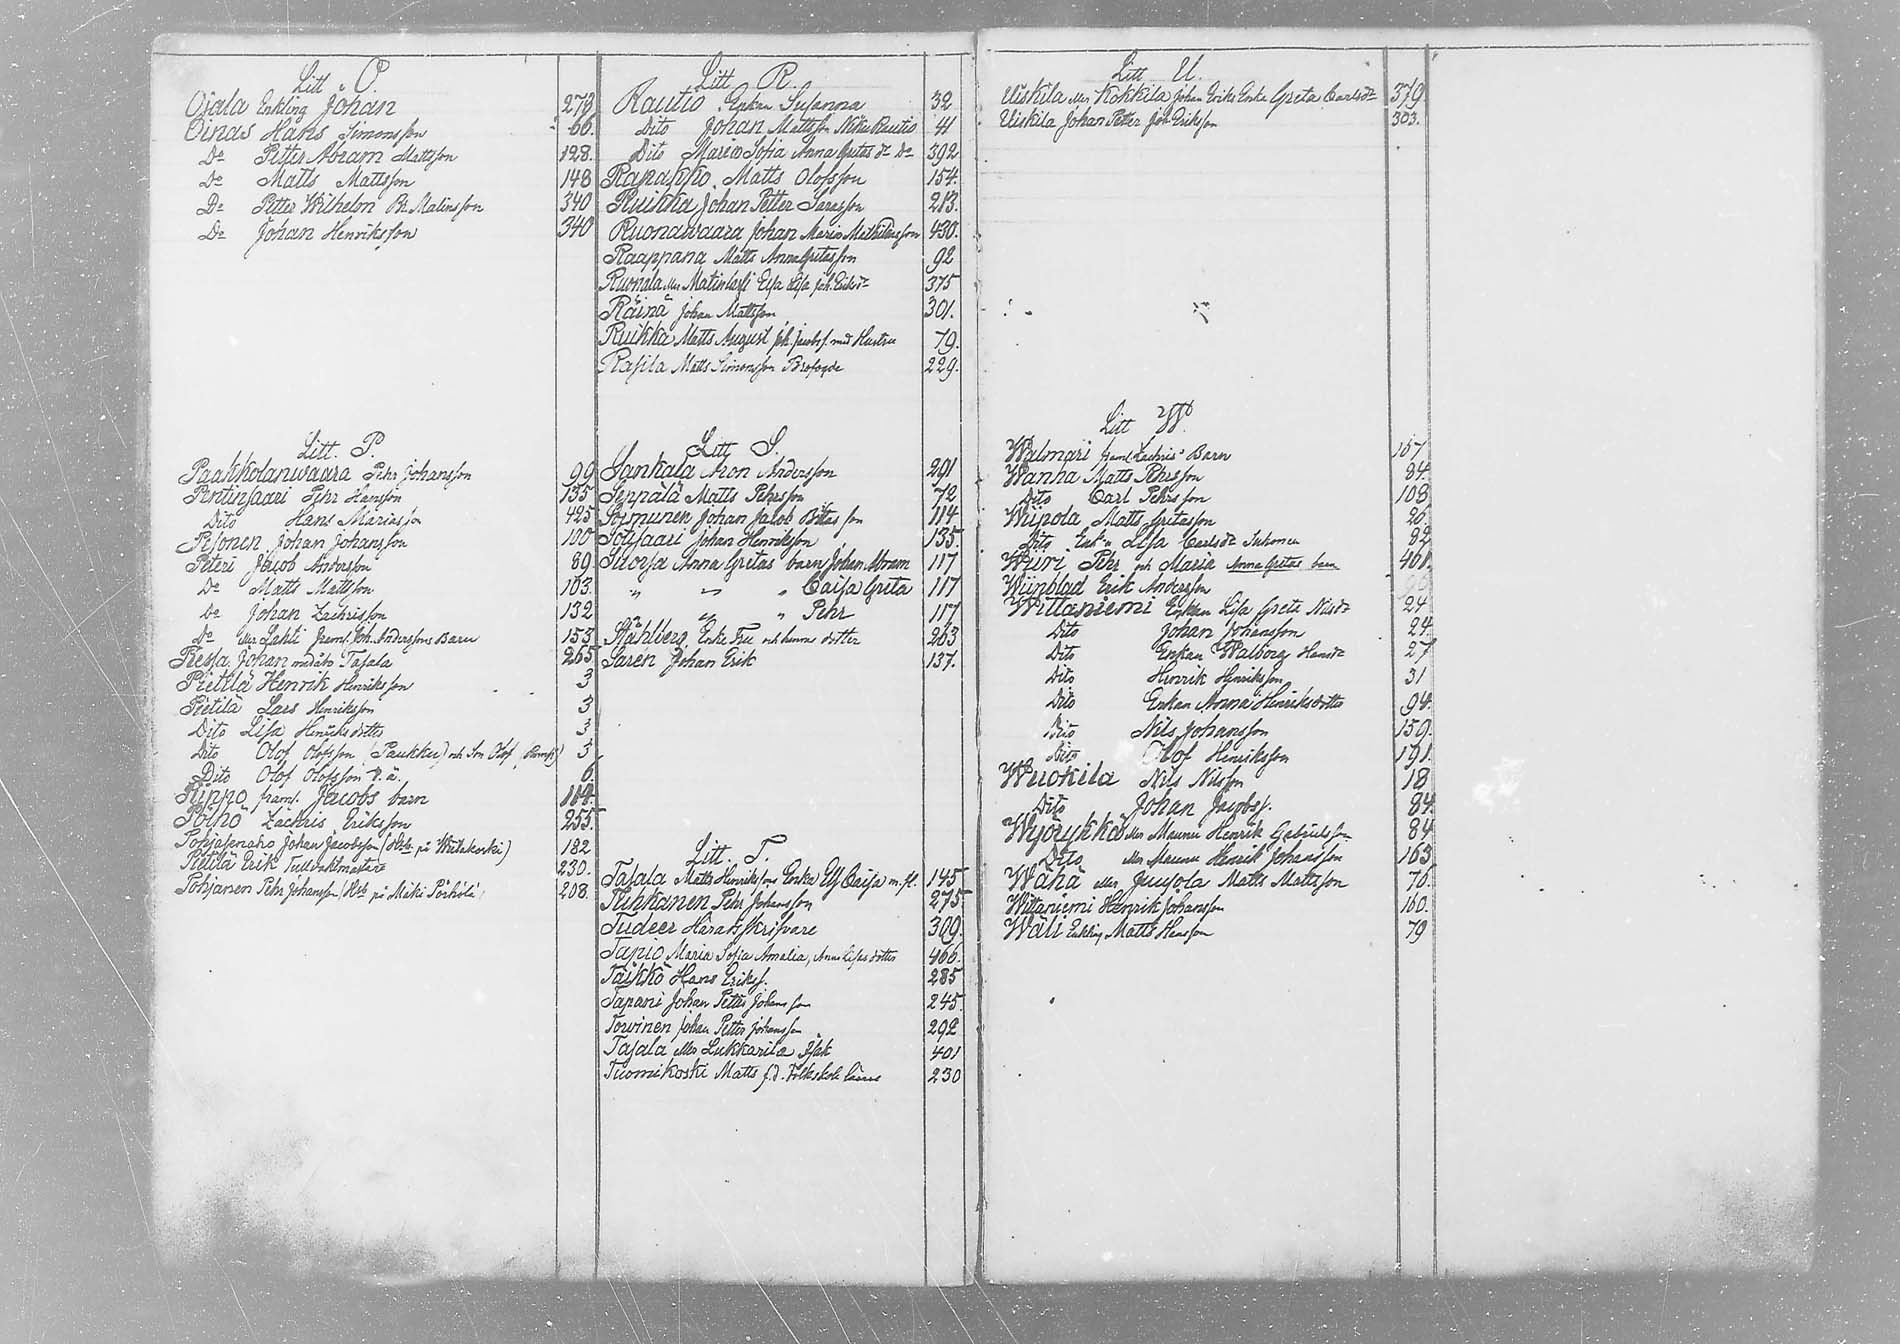 Litt O.
Ojala Enkling Johan 273
Oinas Hans Simonsson 66.
Do Petter Abram Mattsson 128.
Do Matts Mattsson 148
Do Petter Wilhelm Br. Malinsson 340
Do Johan Henriksson 340
Litt. P.
Paakkolanwaara Pehr Johansson 99
Pentinsaari Pehr Hansson 135
Dito Hans Mariasson 425
Pesonen Johan Johansson 100
Peteri Jacob Andersson 89
Do Matts Mattsson 103.
Do Johan Zachrisson 132
Do eller Lahti framl. Joh. Anderssons Barn 153
Pessa Johan madabo Tasala 265
Pietilä Henrik Henriksson 3
Pietilä Lars Henriksson 3
Dito Lisa Henriksdotter 3
Dito Olof Olofsson (Paukku) och Son Olof 3
Dito Olof Olofsson d.ä. 6.
Pippo framl. Jacobs barn 104.
Poinö Zachris Eriksson 255.
Pohjasenaho Johan Jacobsson (Hsb på Wiitakoski) 182
Pietilä Erik Tullvaktmästare 230.
Pohjanen Pehr Johansson (Hsb på Mäki Pörhölä) 208.
Litt R.
Rautio Enkan Susanna 32
Dito Johan Mattsson Niku Rautio 41
Dito Maria Sofia Anna Gretas dr Do 392
Rapakko Matts Olofsson 154.
Ruikka Johan Petter Sarasson 213.
Ruonawaara Johan Maria Mathildasson 430.
Raappana Matts Anna Gretasson 92
Ruonala eller Matinlassi Elsa Lisa Joh. Eriksdr 375
Räinä Johan Mattsson 301.
Ruikka Matts August Joh. Jacobss. med Hustru 79.
Rasila Matts Simonsson Brofogde 229.
Litt S.
Sankala Aron Andersson 291
Seppälä Matts Pehrsson 72
Soimunen Johan Jacob Britas son 114
Sotisaari Johan Henriksson 135.
Suorsa Anna Gretas barn Johan Abram 117
" " " Caisa Greta 117
" " " Pehr 117
Ståhlberg Enke Fru och hennes dotter 263
Saren Johan Erik 137.
Litt. T.
Tasala Matts Henrikssons Enka Els Caisa m.fl. 145
Tikkanen Pehr Johansson 275
Tudeer Häradsskrifvare 309.
Tapio Maria Sofia Amalia, Anna Lisas dotter 466.
Taikko Hans Erikss. 285
Tapani Johan Petter Johansson 245
Torvinen Johan Petter Johansson 292
Tasala eller Lukkarila Isak 401
Tuomikoski Matts f.d. Folkskole lärare 230
Litt U.
Uiskila eller Kokkila Johan Eriks Enka Greta Carlsdr 379
Uiskila Johan Petter Joh. Eriksson 303.
Litt W.
Walmari framl. Zachris' Barn 157
Wanha Matts Pehrsson 84.
Dito Carl Pehrsson 108
Wiipola Matts Gretasson 26
Dito Enkan Lisa Carlsdr Juhonen 82
Wiiri Pehr och Maria Anna Gretas barn 401.
Wiinblad Erik Andersson 96
Wittaniemi Enkan Lisa Greta Nilsdr 24
Dito Johan Johansson 24.
Dito Enkan Walborg Hansdr 27
Dito Henrik Henriksson 31
Dito Enkan Anna Henriksdotter 94.
Dito Nils Johansson 159.
Dito Olof Henriksson 191.
Wuokila Nils Nilsson 18
Dito Johan Jacobss. 84.
Wyörykkä eller Maunu Henrik Gabrielsson 84
Dito eller Maunu Henrik Johansson 163
Wähä eller Junsola Matts Mattsson 76.
Wittaniemi Henrik Johansson 160.
Wäli Enkling Matts Hansson 79